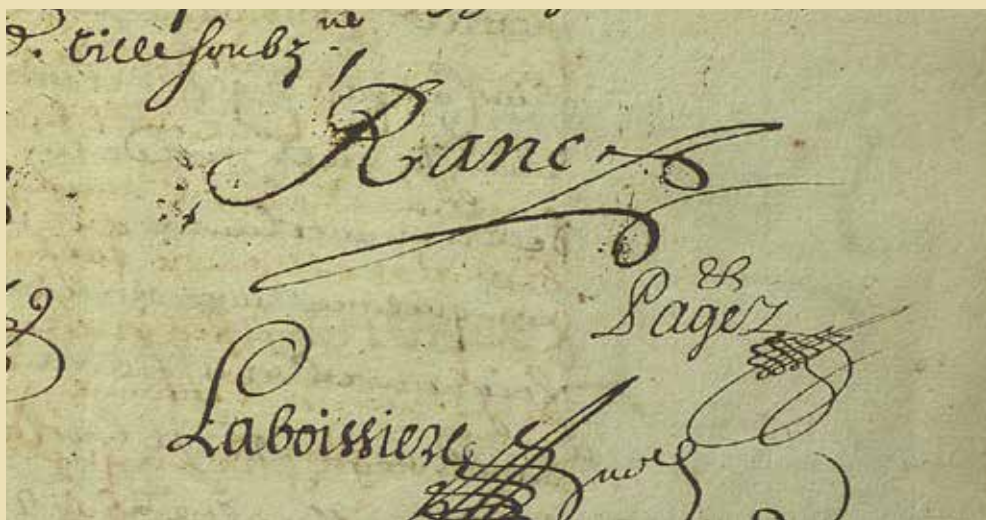 Ranc
Pagez
Laboissiere